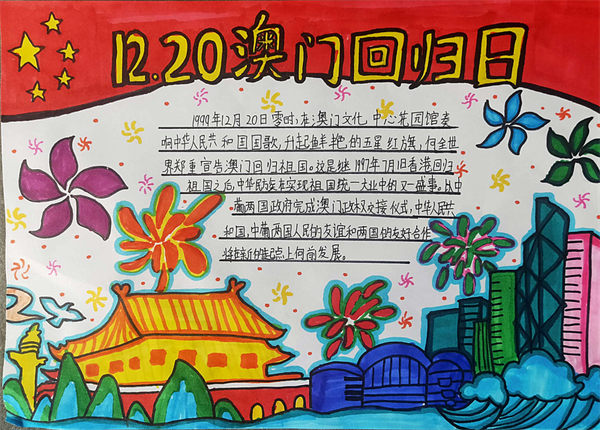 12.20澳门回归日
1999年12月20日零时,在澳门文化中心花园馆奏
响中华人民共和国国歌,升起鲜艳的五星红旗,向全世
界郑重宣告澳门回归祖国。这是继1997年7月1日香港回归
祖国之后,中华民族在实现祖国统一大业中的又一盛事。从中
葡两国政府完成澳门政权交接仪式,中华人民共
和国、中葡两国人民的友谊和两国的友好合作
将在新的起点上向前发展。